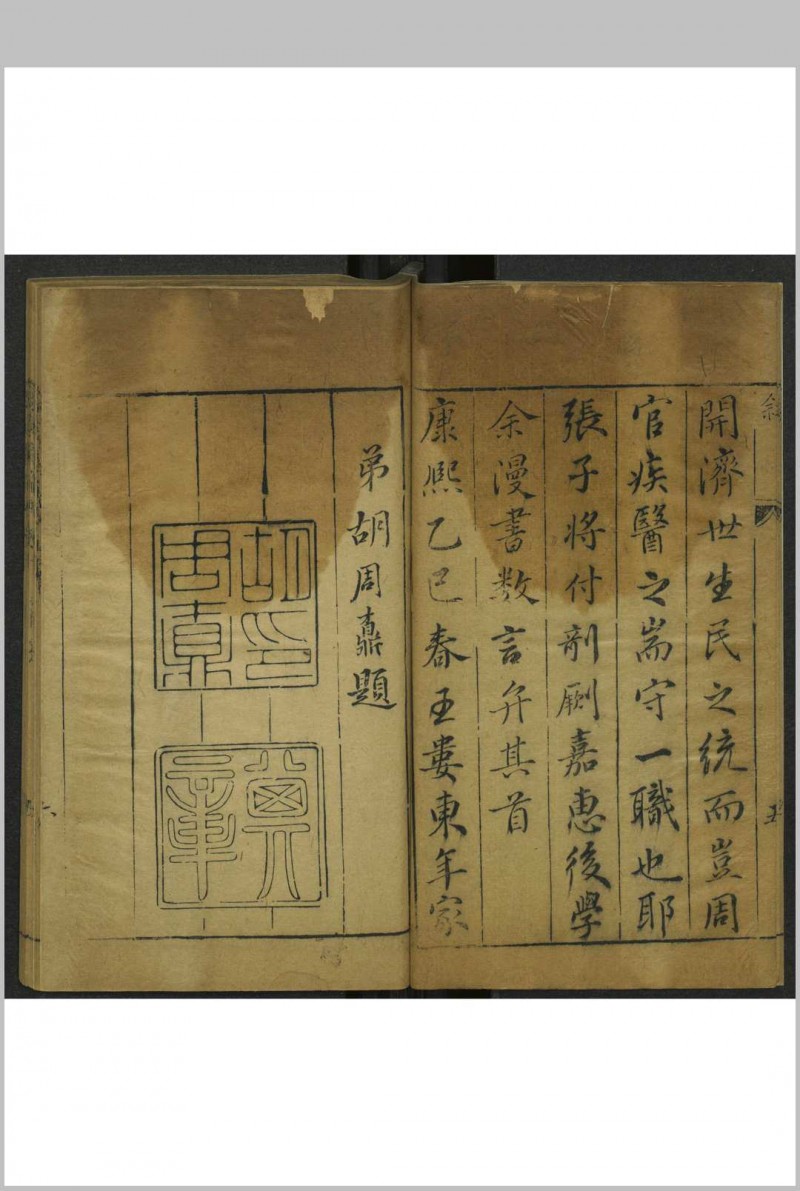 開濟世生民之統而豈周
官疾醫之耑守一職也耶
張子將付剞劂嘉惠後學
余漫書數言弁其首
康熙乙巳春王婁東年家
弟胡周鼒題
胡印
周鼒
五